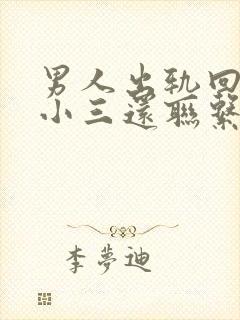 男人出轨回
小三還聯繫
李夢迪